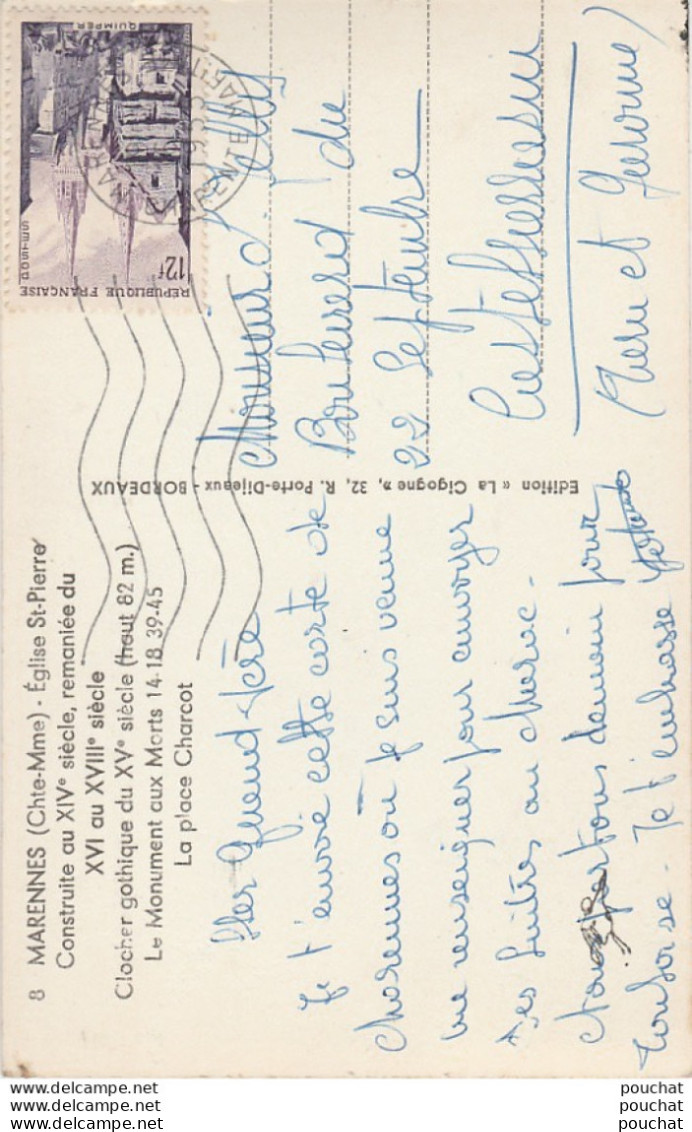 8 MARENNES (Chte-Mme) - Église St-Pierre
Construite au XIVe siècle, remaniée du
XVI au XVIIIe siècle
Clocher gothique du XVe siècle (haut 82 m.)
Le Monument aux Morts 14-18 39-45
La place Charcot
Cher Grand-Père
Je t'envoie cette carte de
Marennes où je suis venue
me renseigner pour envoyer
des huîtres au
Nous partons demain pour
Toulouse - Je t'embrasse
Edition « La Cigogne », 32, R. Porte-Dijeaux - BORDEAUX
Monsieur
Boulevard du
22 Septembre
Castelsarrasin
(Tarn et Garonne)
QUIMPER
12f
RÉPUBLIQUE FRANÇAISE
MARENNES
pouchat
pouchat
pouchat